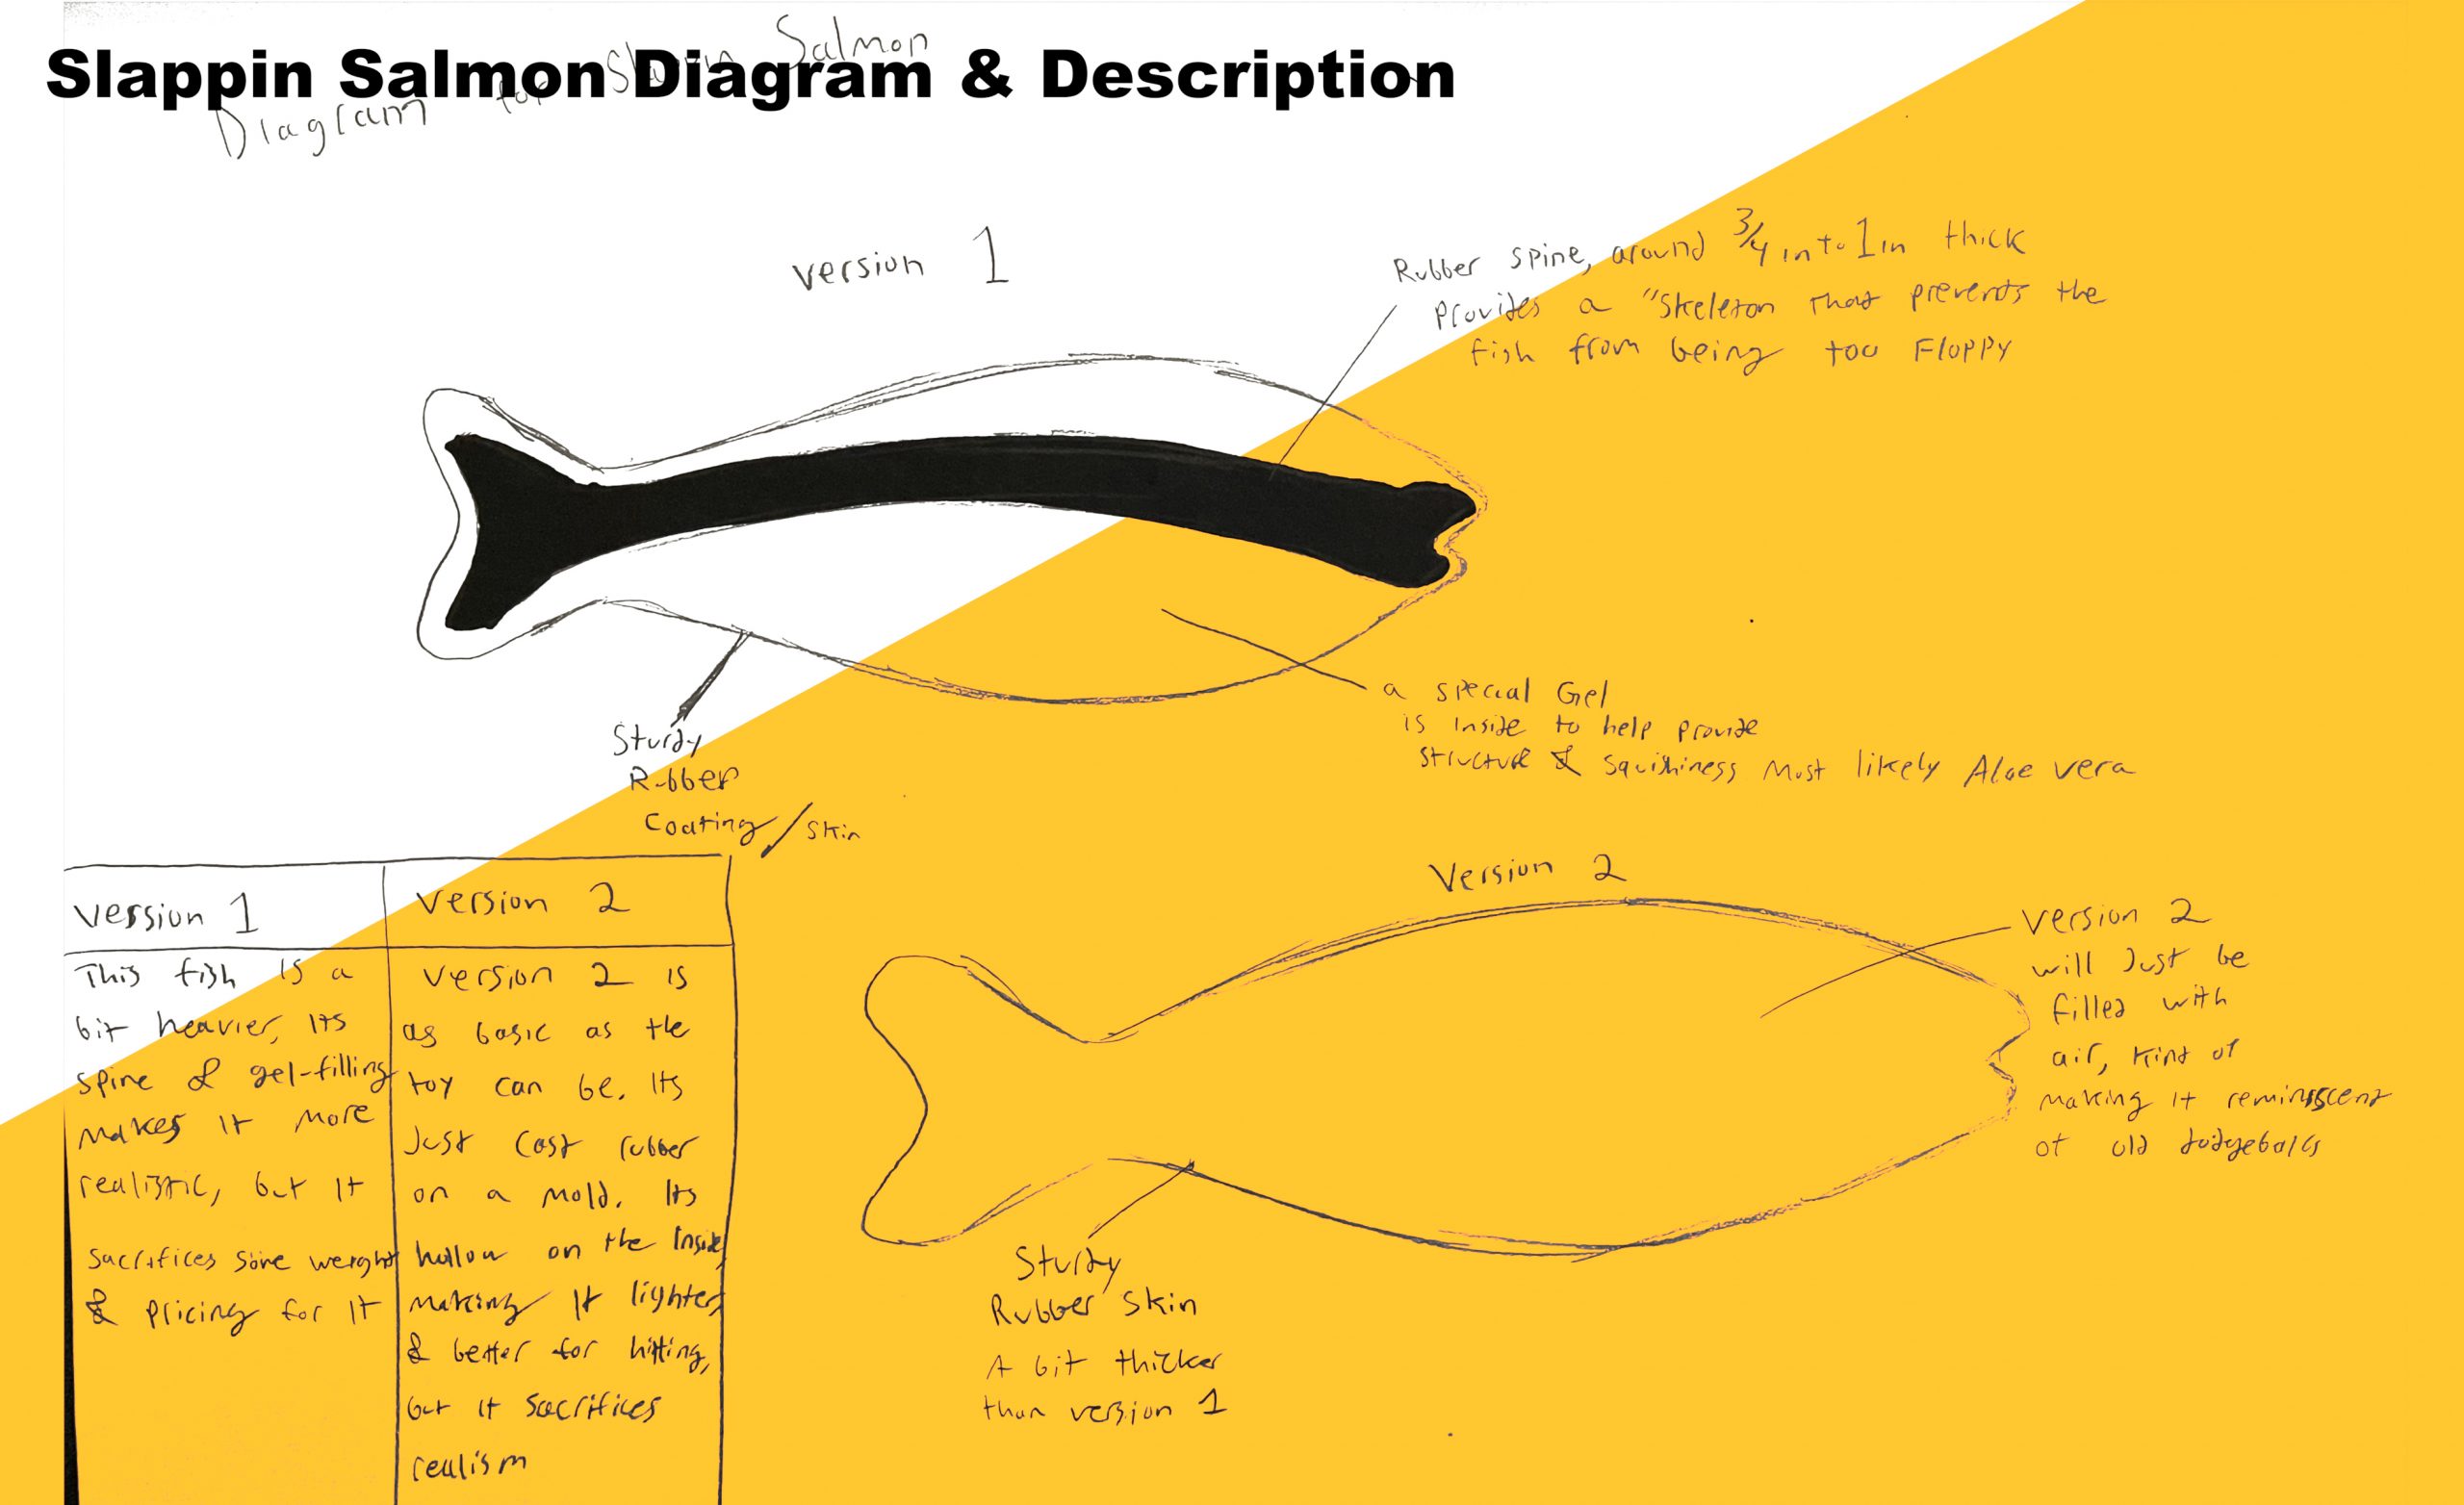 Slappin Salmon Diagram & Description
Diagram for Slappin Salmon
version 1
Rubber spine, around 3/4 in to 1 in thick
Provides a "Skeleton That prevents the
fish from being too Floppy
a special Gel
is Inside to help provide
structure & squishiness Most likely Aloe vera
Sturdy
Rubber
Coating/skin
version 1
This fish is a
bit heavier, its
spine & gel-filling
makes it more
realistic, but it
sacrifices some weight
& pricing for it
version 2
version 2 is
as basic as the
toy can be. Its
Just cast rubber
on a mold. Its
hollow on the Inside,
making It lighter,
& better for hitting,
but it sacrifices
realism
Version 2
version 2
will Just be
filled with
air, kind of
making it reminiscent
of old dodgeballs
Sturdy
Rubber Skin
A bit thicker
than version 1